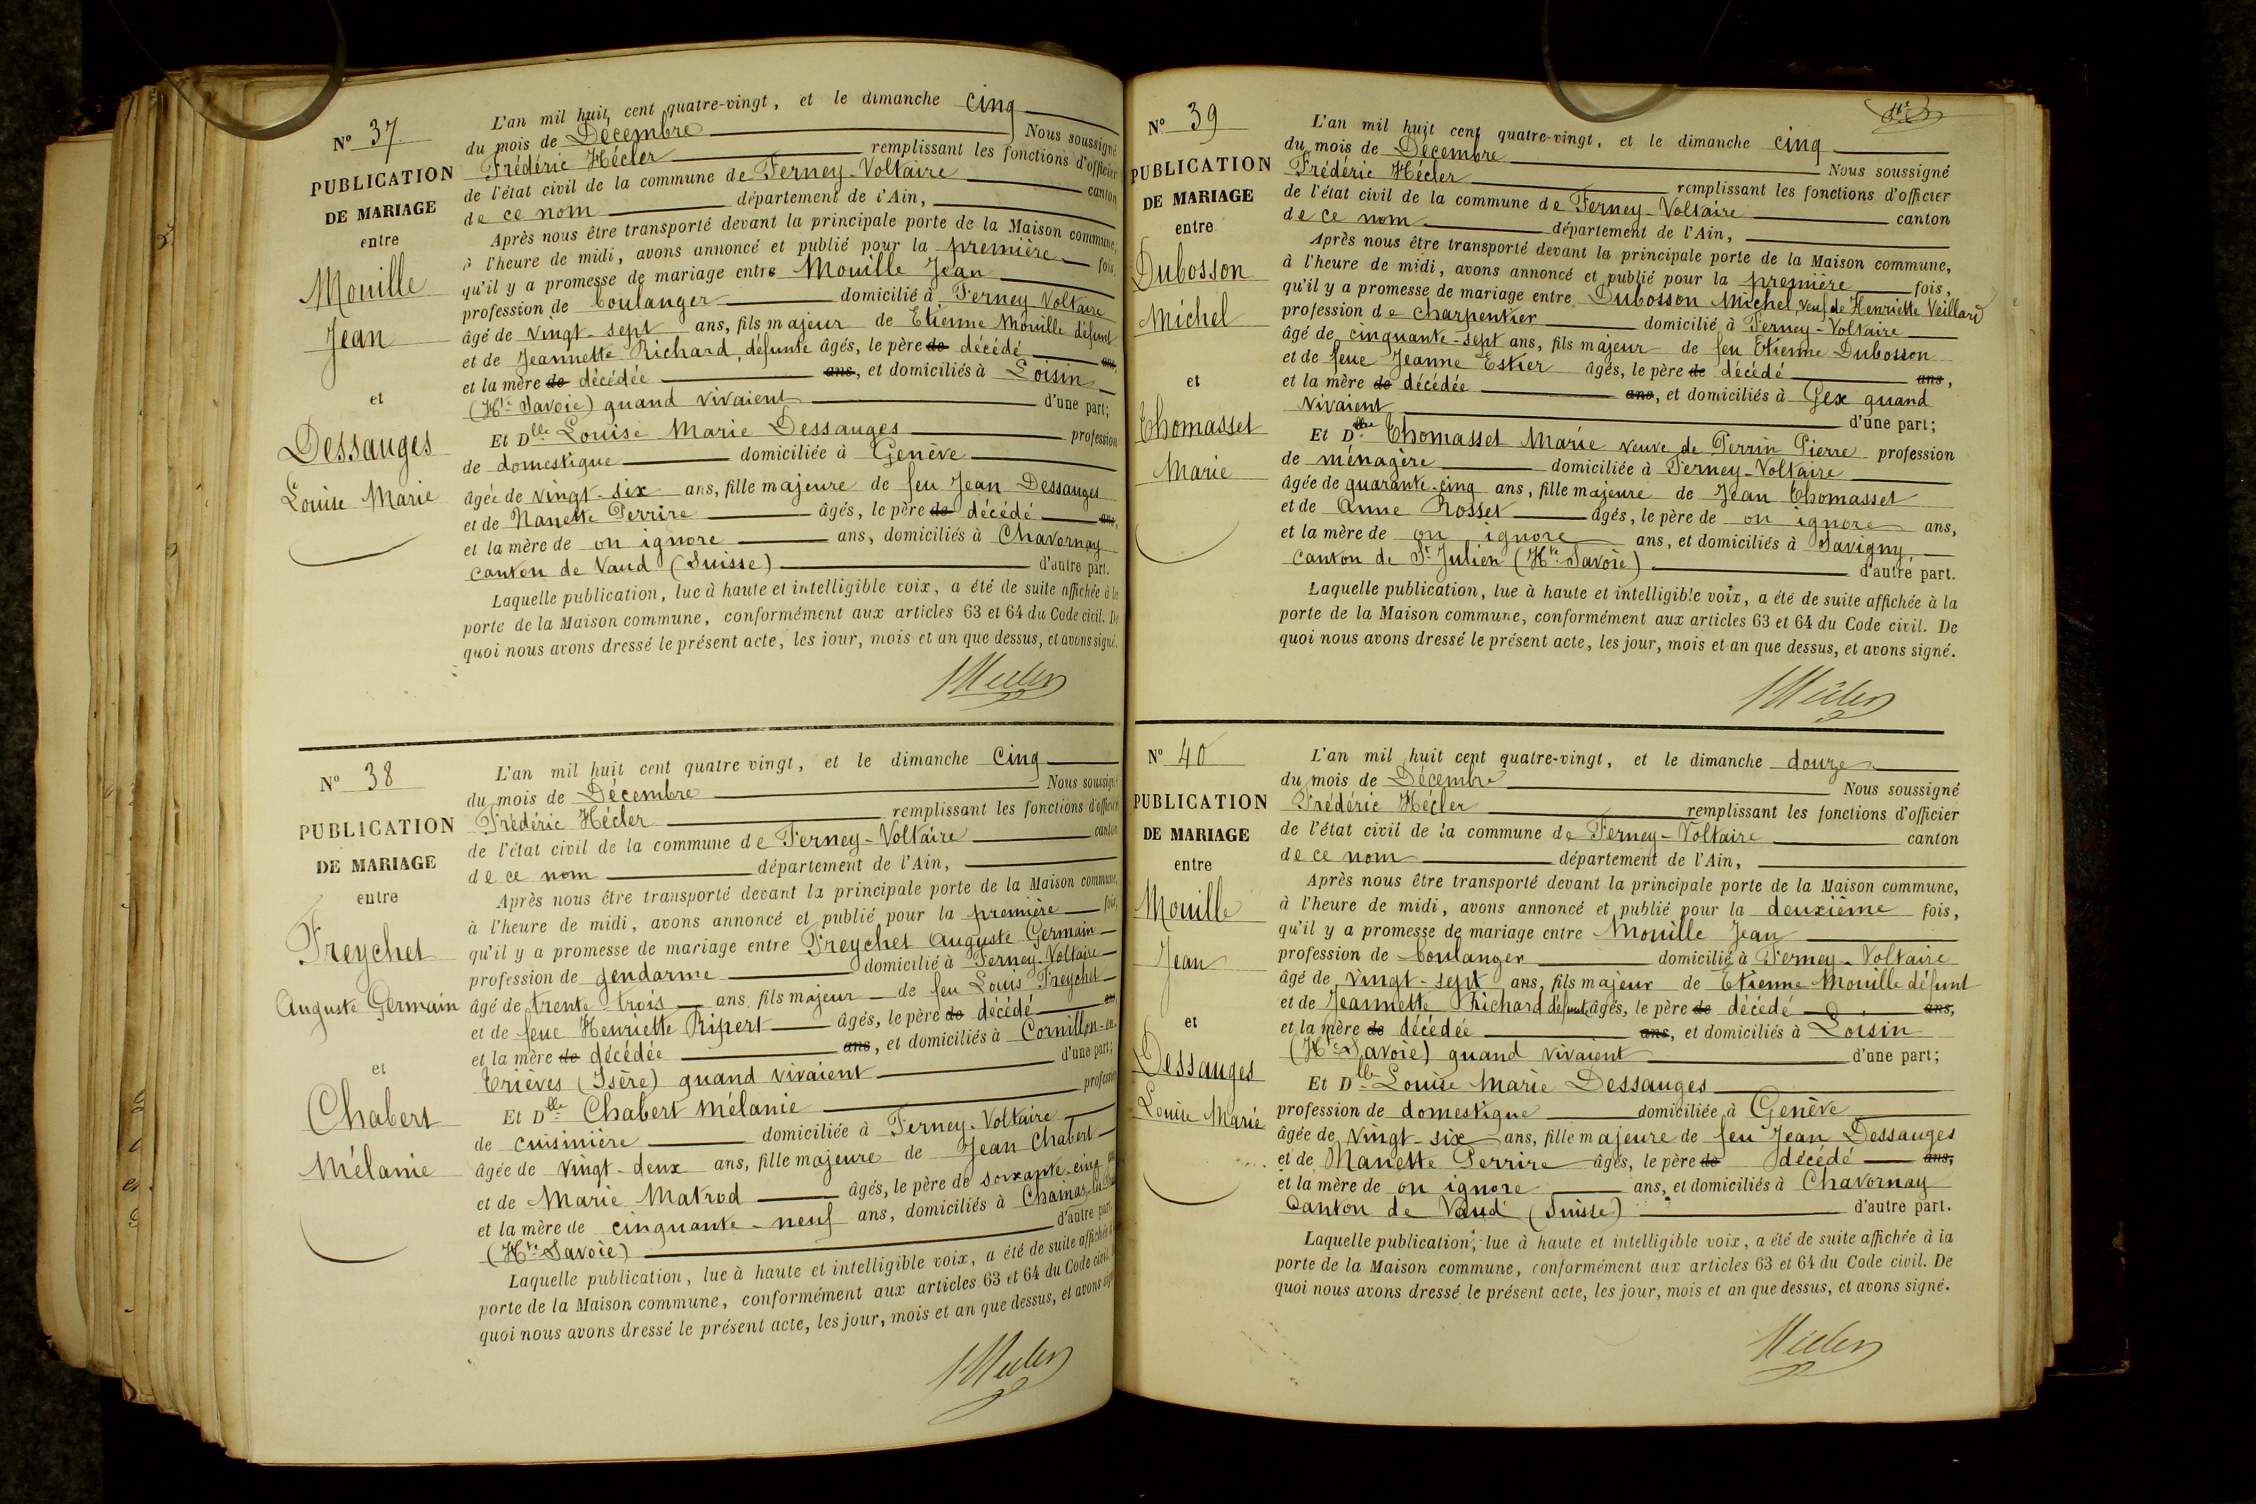 N° 37
PUBLICATION
DE MARIAGE
entre
Mouille
Jean
et
Dessauges
Louise Marie
L'an mil huit cent quatre-vingt, et le dimanche cinq
du mois de Décembre Nous soussigné
Frédéric Hécler remplissant les fonctions d'officier
de l'état civil de la commune de Ferney-Voltaire canton
de ce nom département de l'Ain,
Après nous être transporté devant la principale porte de la Maison commune,
à l'heure de midi, avons annoncé et publié pour la première fois,
qu'il y a promesse de mariage entre Mouille Jean
profession de boulanger domicilié à Ferney Voltaire
âgé de vingt-sept ans, fils majeur de Etienne Mouille défunt
et de Jeannette Richard, défunte âgés, le père de décédé ans,
et la mère de décédée ans, et domiciliés à Loisin
(Hte Savoie) quand vivaient d'une part;
Et Dlle Louise Marie Dessauges profession
de domestique domiciliée à Genève
âgée de vingt-six ans, fille majeure de feu Jean Dessauges
et de Nanette Perrire âgés, le père de décédé ans,
et la mère de on ignore ans, domiciliés à Chavornay
canton de Vaud (Suisse) d'autre part.
Laquelle publication, lue à haute et intelligible voix, a été de suite affichée à la
porte de la Maison commune, conformément aux articles 63 et 64 du Code civil. De
quoi nous avons dressé le présent acte, les jour, mois et an que dessus, et avons signé.
Hécler
N° 38
PUBLICATION
DE MARIAGE
entre
Freychet
Auguste Germain
et
Chabert
Mélanie
L'an mil huit cent quatre vingt, et le dimanche cinq
du mois de Décembre Nous soussigné
Frédéric Hécler remplissant les fonctions d'officier
de l'état civil de la commune de Ferney-Voltaire canton
de ce nom département de l'Ain,
Après nous être transporté devant la principale porte de la Maison commune,
à l'heure de midi, avons annoncé et publié pour la première fois,
qu'il y a promesse de mariage entre Freychet Auguste Germain
profession de gendarme domicilié à Ferney-Voltaire
âgé de trente trois ans, fils majeur de feu Louis Freychet
et de feue Henriette Ripert âgés, le père de décédé ans
et la mère de décédée ans, et domiciliés à Cornillon-en
Trièves (Isère) quand vivaient d'une part;
Et Dlle Chabert Mélanie profession
de cuisinière domiciliée à Ferney-Voltaire
âgée de vingt-deux ans, fille majeure de Jean Chabert
et de Marie Matrod âgés, le père de soixante-cinq
et la mère de cinquante-neuf ans, domiciliés à
(Hte Savoie) d'autre part.
Laquelle publication, lue à haute et intelligible voix, a été de suite affichée à la
porte de la Maison commune, conformément aux articles 63 et 64 du Code civil.
quoi nous avons dressé le présent acte, les jour, mois et an que dessus, et avons signé
Hécler
N° 39
PUBLICATION
DE MARIAGE
entre
Dubosson
Michel
et
Thomasset
Marie
L'an mil huit cent quatre-vingt, et le dimanche cinq
du mois de Décembre Nous soussigné
Frédéric Hécler remplissant les fonctions d'officier
de l'état civil de la commune de Ferney-Voltaire canton
de ce nom département de l'Ain,
Après nous être transporté devant la principale porte de la Maison commune,
à l'heure de midi, avons annoncé et publié pour la première fois,
qu'il y a promesse de mariage entre Dubosson Michel, veuf de Henriette Veillard
profession de charpentier domicilié à Ferney-Voltaire
âgé de cinquante-sept ans, fils majeur de feu Etienne Dubosson
et de feue Jeanne Estier âgés, le père de décédé ans,
et la mère de décédée ans, et domiciliés à Gex quand
vivaient d'une part;
Et Dlle Thomasset Marie veuve de Perrin Pierre profession
de ménagère domiciliée à Ferney-Voltaire
âgée de quarante-cinq ans, fille majeure de Jean Thomasset
et de Anne Rosset âgés, le père de on ignore ans,
et la mère de on ignore ans, et domiciliés à Savigny,
canton de St Julien (Hte Savoie) d'autre part.
Laquelle publication, lue à haute et intelligible voix, a été de suite affichée à la
porte de la Maison commune, conformément aux articles 63 et 64 du Code civil. De
quoi nous avons dressé le présent acte, les jour, mois et an que dessus, et avons signé.
Hécler
N° 40
PUBLICATION
DE MARIAGE
entre
Mouille
Jean
et
Dessauges
Louise Marie
L'an mil huit cent quatre-vingt, et le dimanche douze
du mois de Décembre Nous soussigné
Frédéric Hécler remplissant les fonctions d'officier
de l'état civil de la commune de Ferney-Voltaire canton
de ce nom département de l'Ain,
Après nous être transporté devant la principale porte de la Maison commune,
à l'heure de midi, avons annoncé et publié pour la deuxième fois,
qu'il y a promesse de mariage entre Mouille Jean
profession de boulanger domicilié à Ferney-Voltaire
âgé de vingt-sept ans, fils majeur de Etienne Mouille défunt
et de Jeannette Richard défunte âgés, le père de décédé ans,
et la mère de décédée ans, et domiciliés à Loisin
(Hte Savoie) quand vivaient d'une part;
Et Dlle Louise Marie Dessauges
profession de domestique domiciliée à Genève
âgée de vingt-six ans, fille majeure de feu Jean Dessauges
et de Nanette Perrire âgés, le père de décédé ans,
et la mère de on ignore ans, et domiciliés à Chavornay
Canton de Vaud (Suisse) d'autre part.
Laquelle publication, lue à haute et intelligible voix, a été de suite affichée à la
porte de la Maison commune, conformément aux articles 63 et 64 du Code civil. De
quoi nous avons dressé le présent acte, les jour, mois et an que dessus, et avons signé.
Hécler